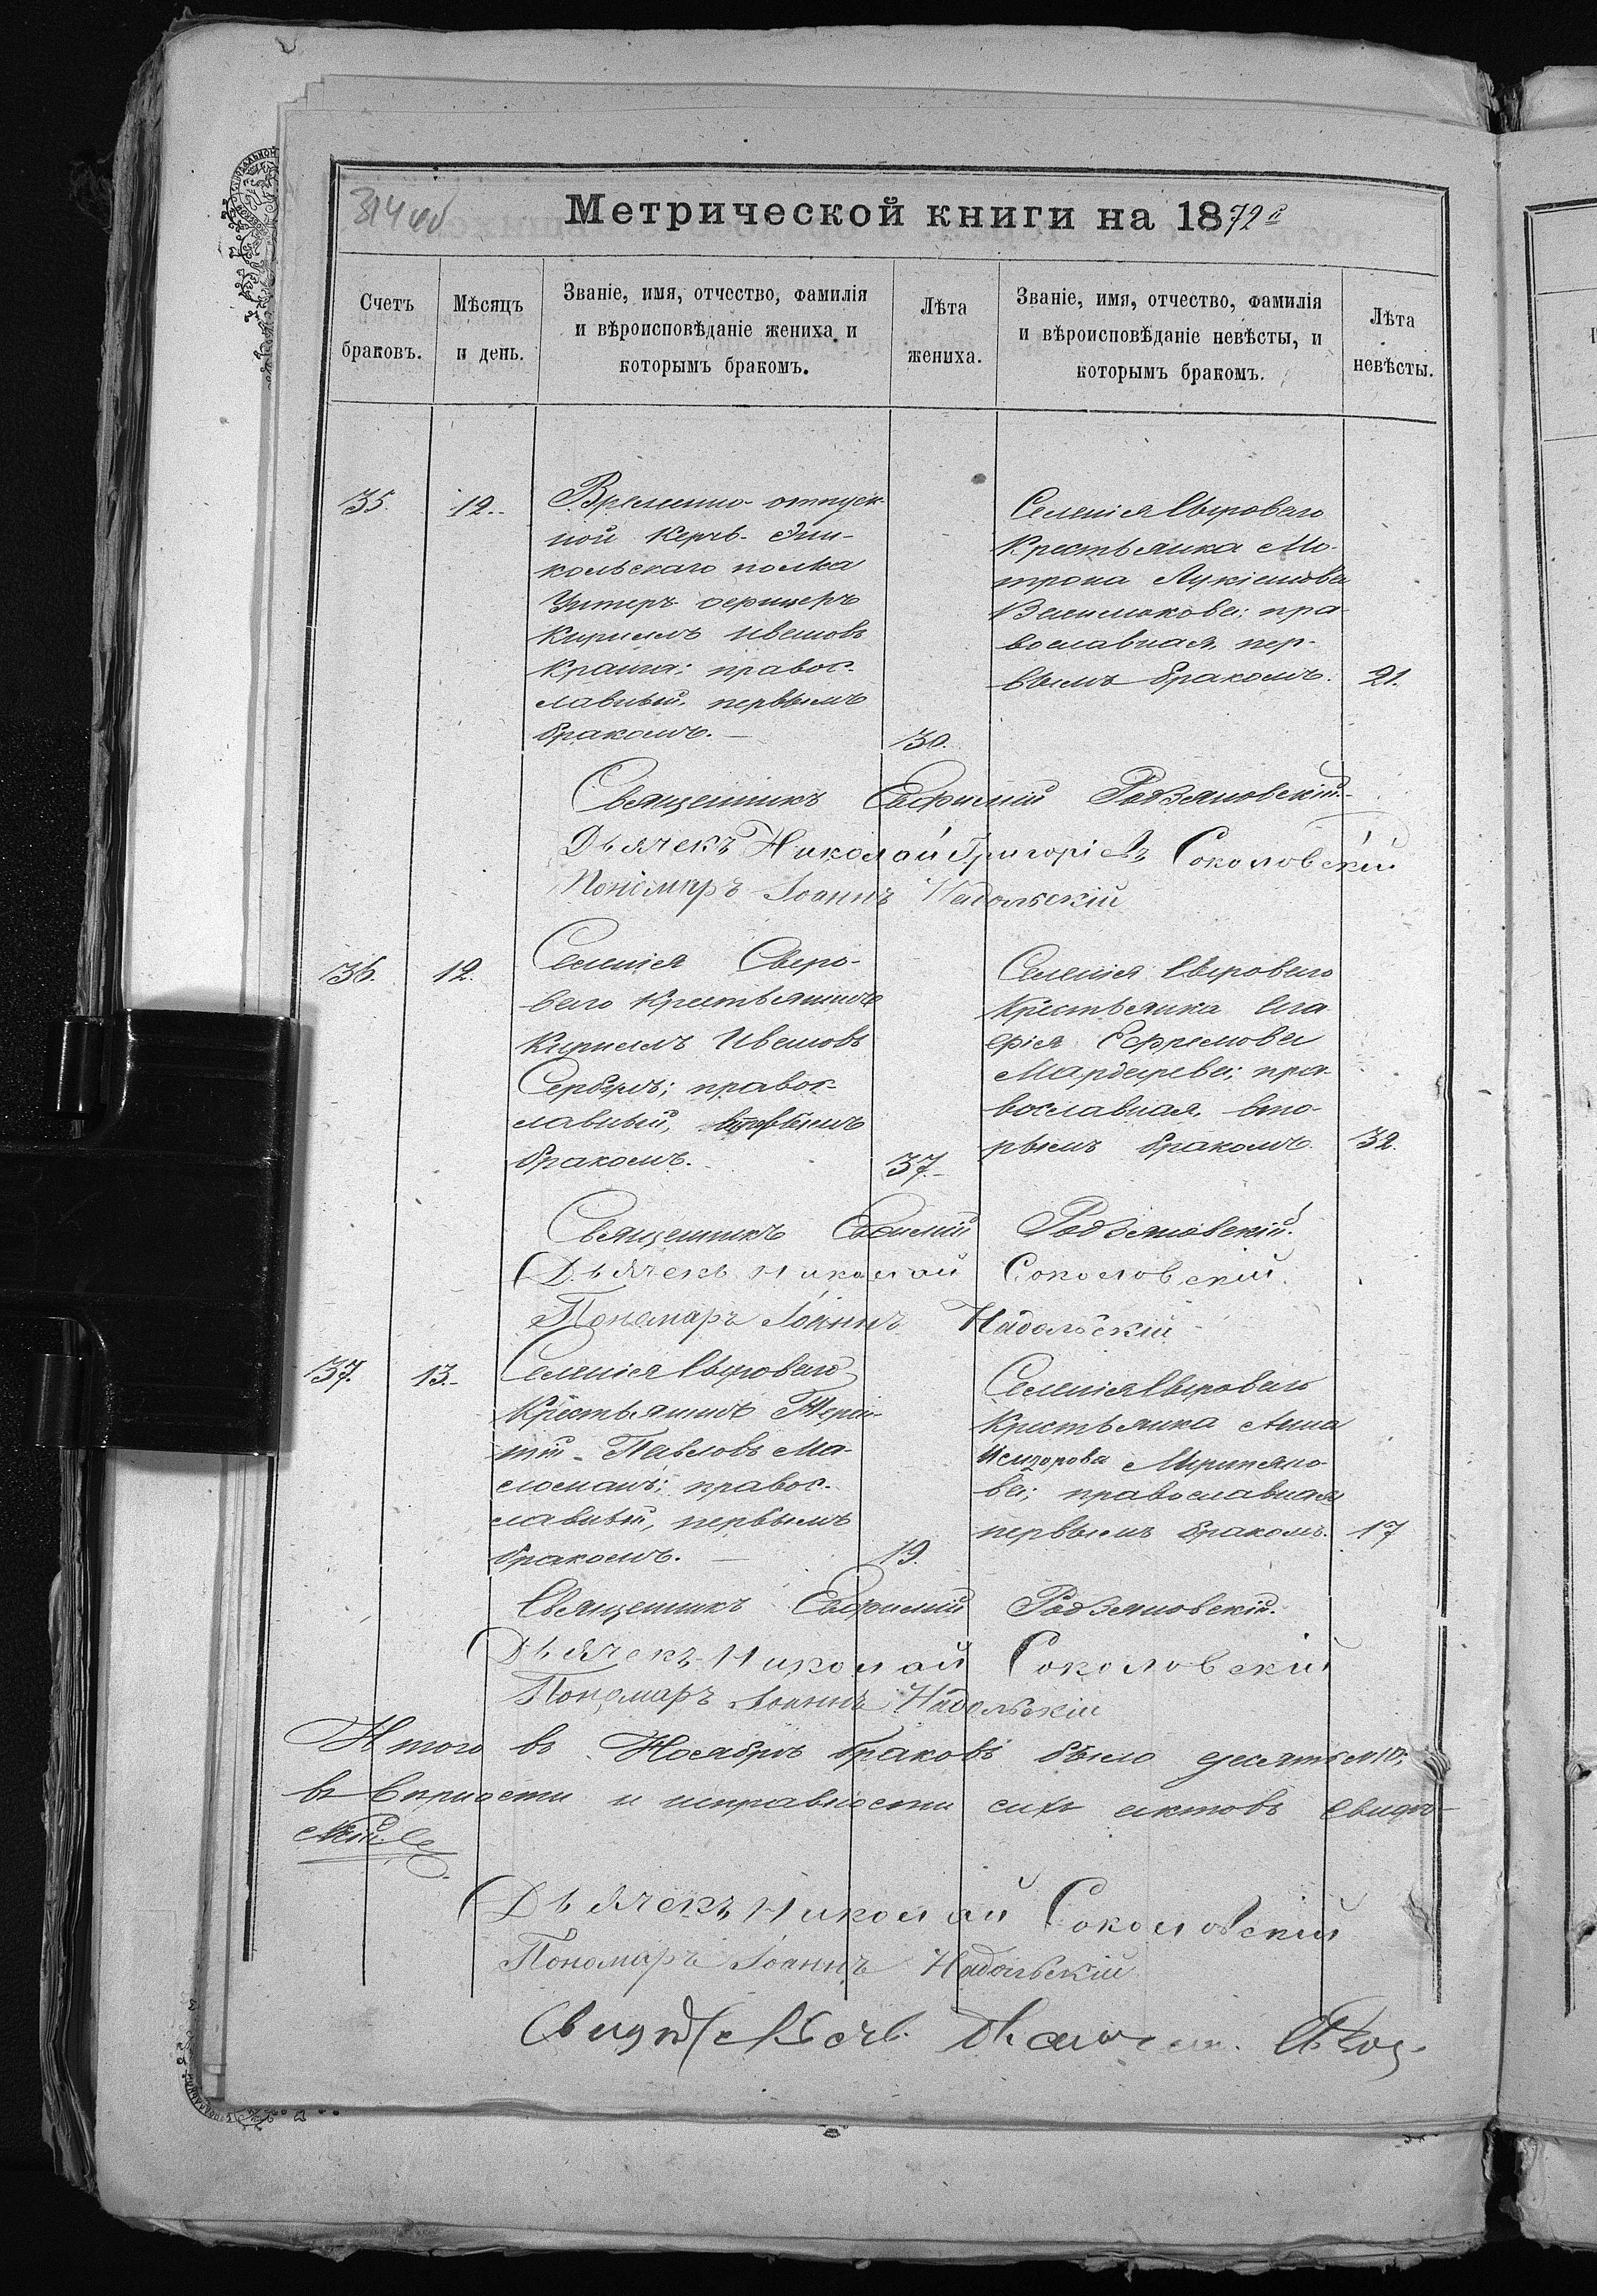 314 об
Метрической книги на 1872 г
Счетъ браковъ.
Мѣсяцъ и день.
Званіе, имя, отчество, фамилія и вѣроисповѣданіе жениха и которымъ бракомъ.
Лѣта жениха.
Званіе, имя, отчество, фамилія и вѣроисповѣданіе невѣсты, и которымъ бракомъ.
Лѣта невѣсты.
35. 12.
Временно-отпуск-
ной Керчь-Эни-
кольскаго полка
Унтеръ-офицеръ
Кириллъ Ивановъ
правос-
лавный, первымъ
бракомъ.
30.
Селенія Сырового
Крестьянка Мо-
трона Лукіанова
пра-
вославная, пер-
вымъ бракомъ.
21.
Священникъ Евфимій Родзяновскій
Дьячекъ Николай Григоріевъ Соколовскій
Пономаръ Іоаннъ Надольскій
36. 12.
Селенія Сыро-
ваго Крестьянинъ
Кириллъ Ивановъ
Сербулъ; правос-
лавный, вторымъ
бракомъ.
37.
Селенія Сырового
Крестьянка Ага-
фія Ефремова
Мардарева; пра-
вославная, вто-
рымъ бракомъ
32.
Священникъ Евфимій Родзяновскій.
Дьячекъ Николай Соколовскій.
Пономаръ Іоаннъ Надольскій
37. 13.
Селенія Сырового
Крестьянинъ Терен-
тій Павловъ Ма-
правос-
лавный, первымъ
бракомъ.
19.
Селенія Сырового
Крестьянка Анна
Исидорова
православная
первымъ бракомъ.
17
Священникъ Евфимій Родзяновскій.
Дьячекъ Николай Соколовскій
Пономаръ Іоаннъ Надольскій
Итого въ Ноябрѣ браковъ было десять №10;
въ вѣрности и исправности сихъ актовъ
Дьячекъ Николай Соколовскій
Пономаръ Іоаннъ Надольскій